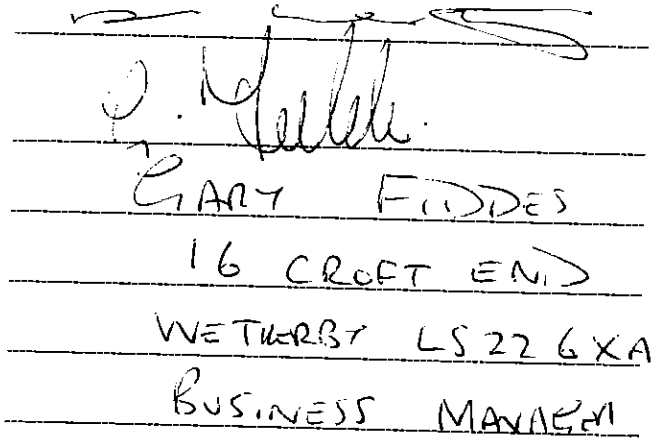 GARY FIDDES
16 CROFT END
WETHERBY LS22 6XA
BUSINESS MANAGER